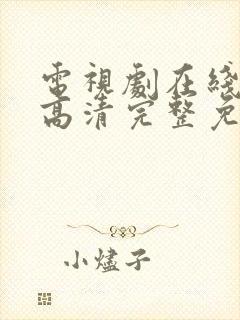 電視劇在綫
高清完整免
小燼子